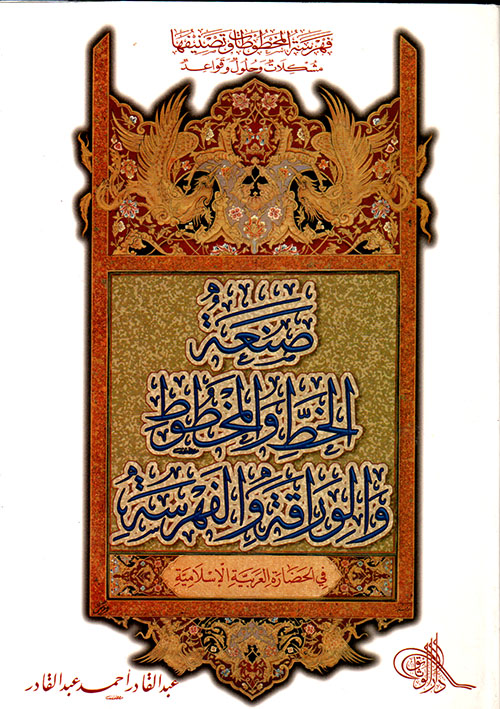 فهرسة المخطوطات وتصنيفها
مشكلات وحلول وقواعد
صنعة
الخط والمخطوط
والوراقة والفهرسة
في الحضارة العربية الإسلامية
عبد القادر أحمد عبد القادر
دار الوثائق